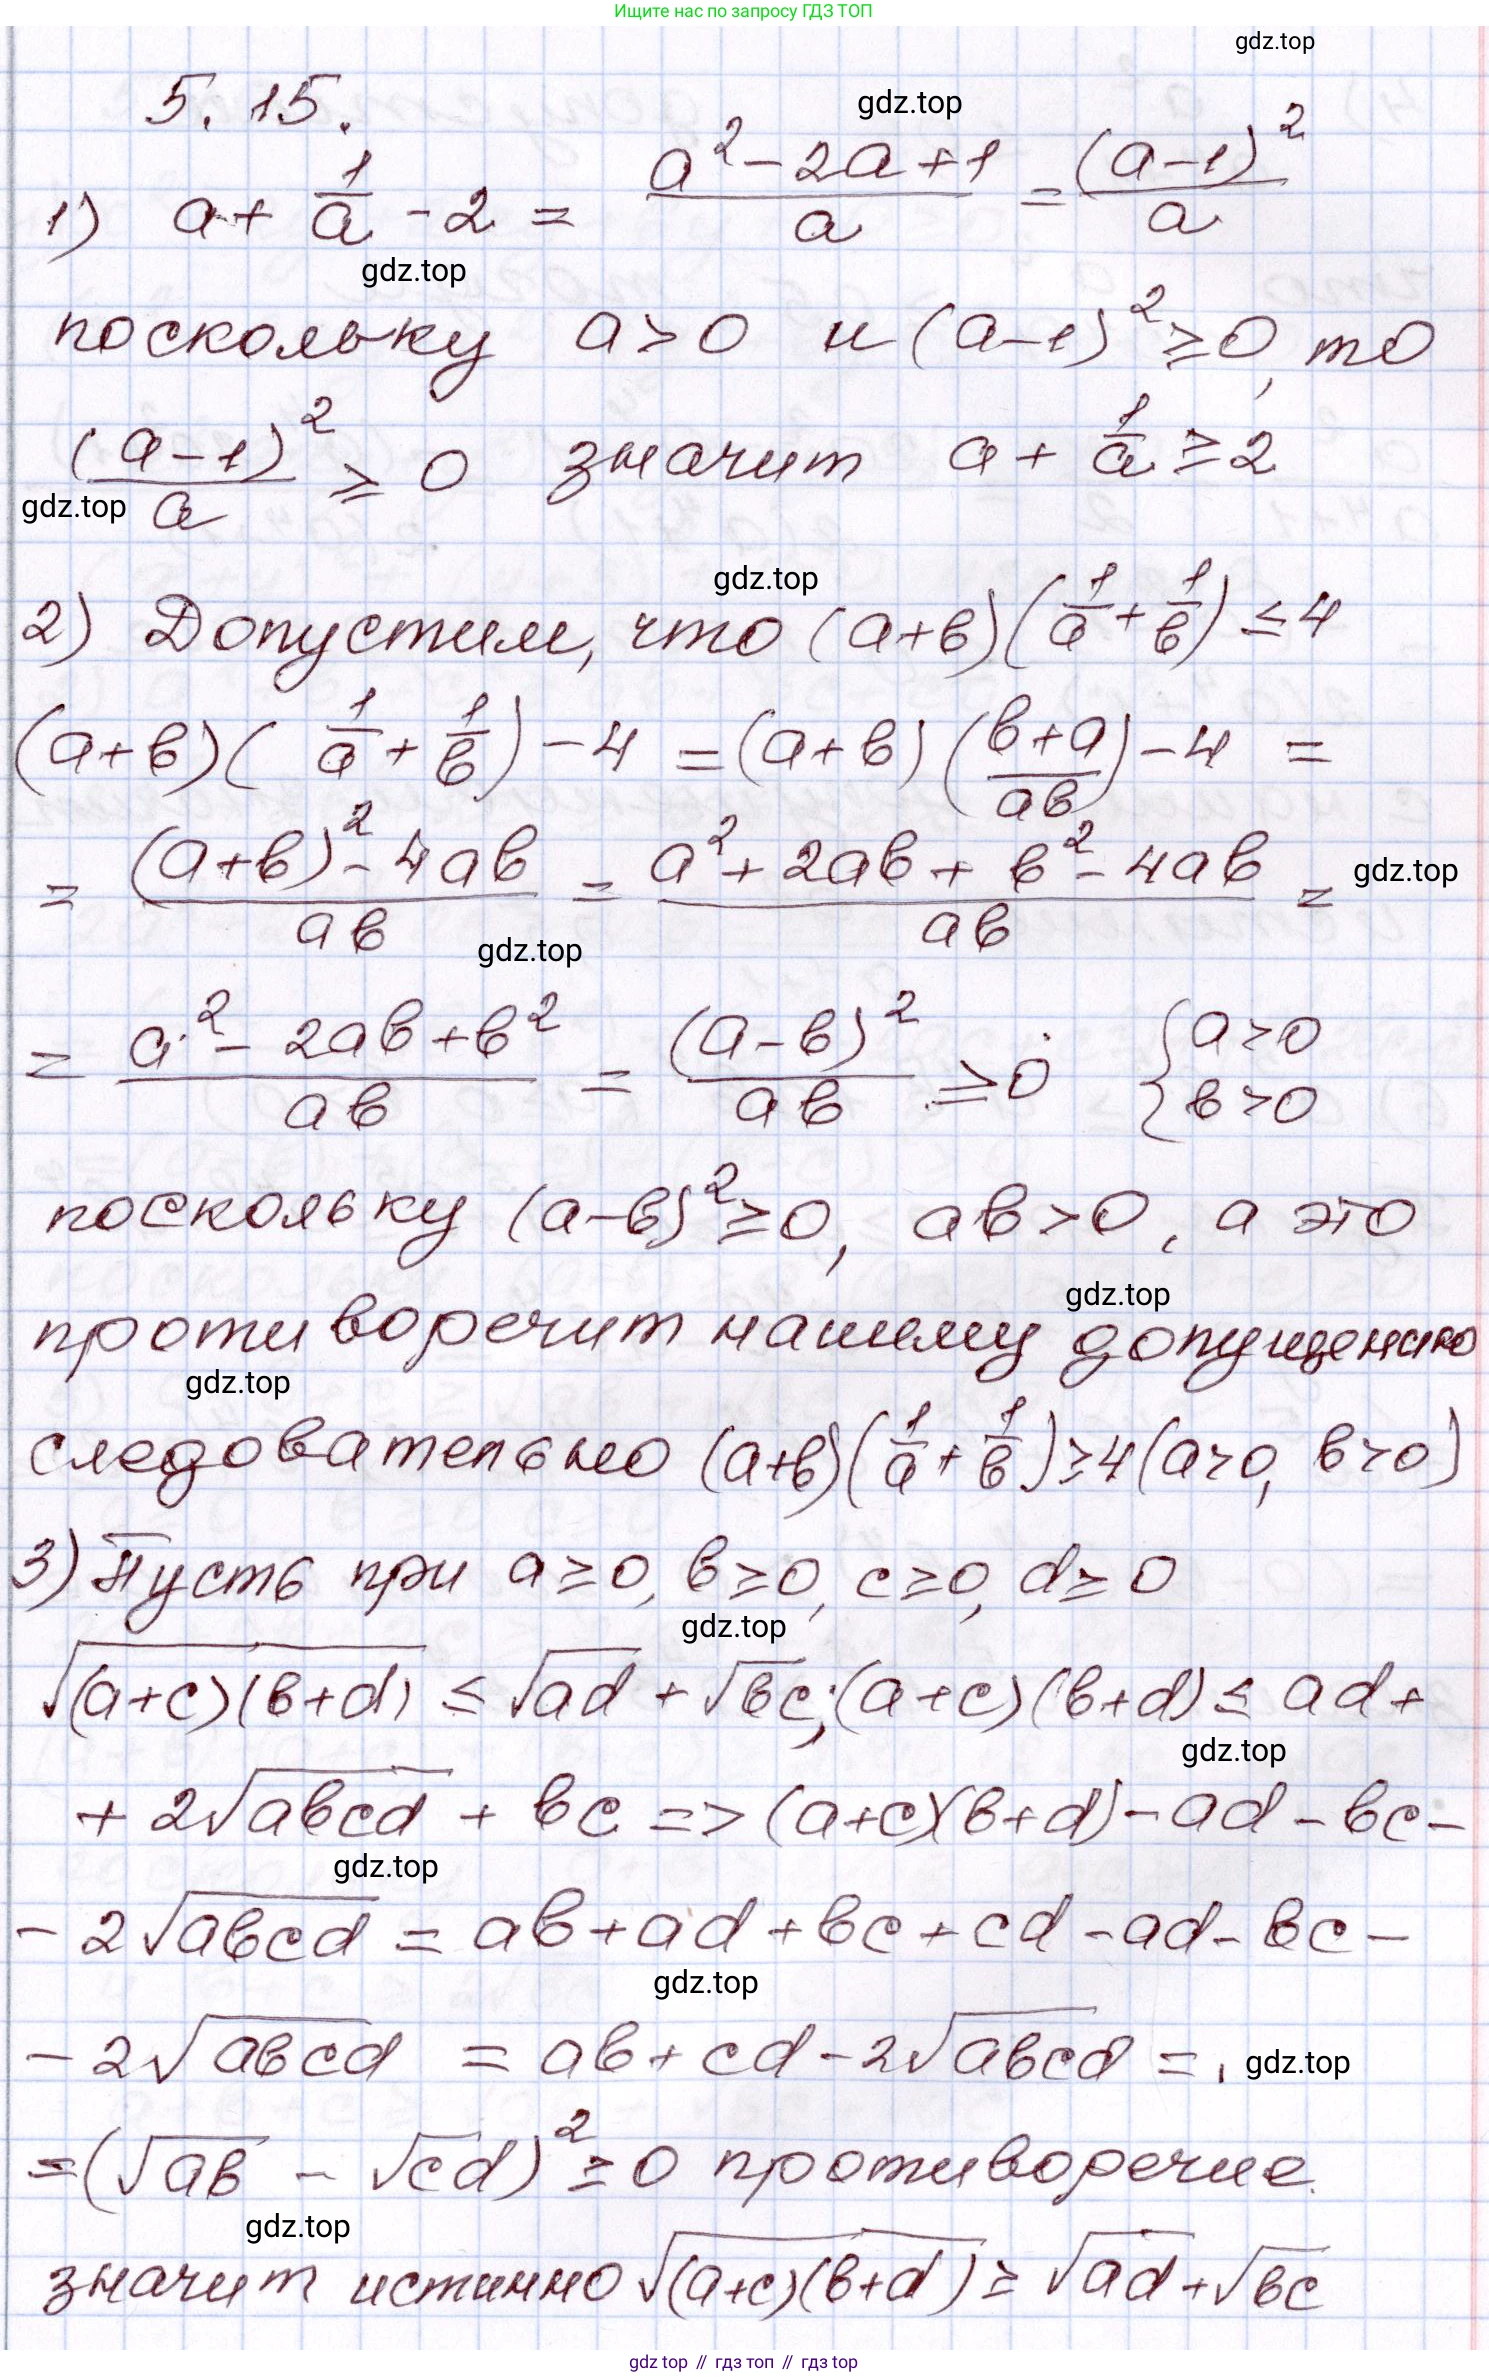 Ищите нас по запросу ГДЗ ТОП
gdz.top
5.15.
gdz.top
1) a + 1/a - 2 = (a² - 2a + 1)/a = (a-1)²/a
gdz.top
поскольку a > 0 и (a-1)² ≥ 0, то
(a-1)²/a ≥ 0 значит a + 1/a ≥ 2
gdz.top
gdz.top
2) Допустим, что (a+в)(1/a + 1/в) ≤ 4
(a+в)(1/a + 1/в) - 4 = (a+в)((в+a)/aв) - 4 =
= ((a+в)² - 4aв)/aв = (a² + 2aв + в² - 4aв)/aв =
gdz.top
gdz.top
= (a² - 2aв + в²)/aв = (a-в)²/aв ≥ 0 { a>0 в>0
поскольку (a-в)² ≥ 0, aв > 0, а это
gdz.top
противоречит нашему допущению
gdz.top
следовательно (a+в)(1/a + 1/в) ≥ 4 (a>0, в>0)
3) Пусть при a ≥ 0, в ≥ 0, c ≥ 0, d ≥ 0
gdz.top
√((a+c)(в+d)) ≤ √ad + √вc; (a+c)(в+d) ≤ ad +
gdz.top
+ 2√aвcd + вc => (a+c)(в+d) - ad - вc -
gdz.top
- 2√aвcd = aв + ad + вc + cd - ad - вc -
gdz.top
- 2√aвcd = aв + cd - 2√aвcd =
gdz.top
= (√aв - √cd)² ≥ 0 противоречие.
gdz.top
значит истинно √((a+c)(в+d)) ≥ √ad + √вc
gdz.top // гдз топ // гдз top